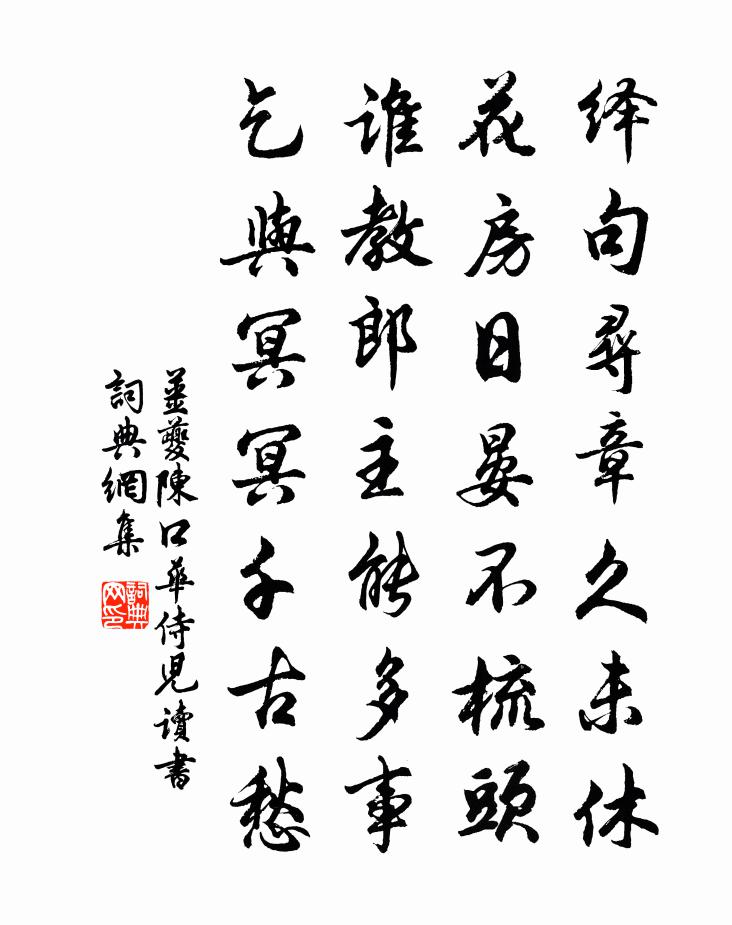 绎句尋章久未休
花房日晏不梳頭
誰教郎主能多事
乞與冥冥千古愁
姜夔陳口華侍児讀書
詞典網集
詞典
网印